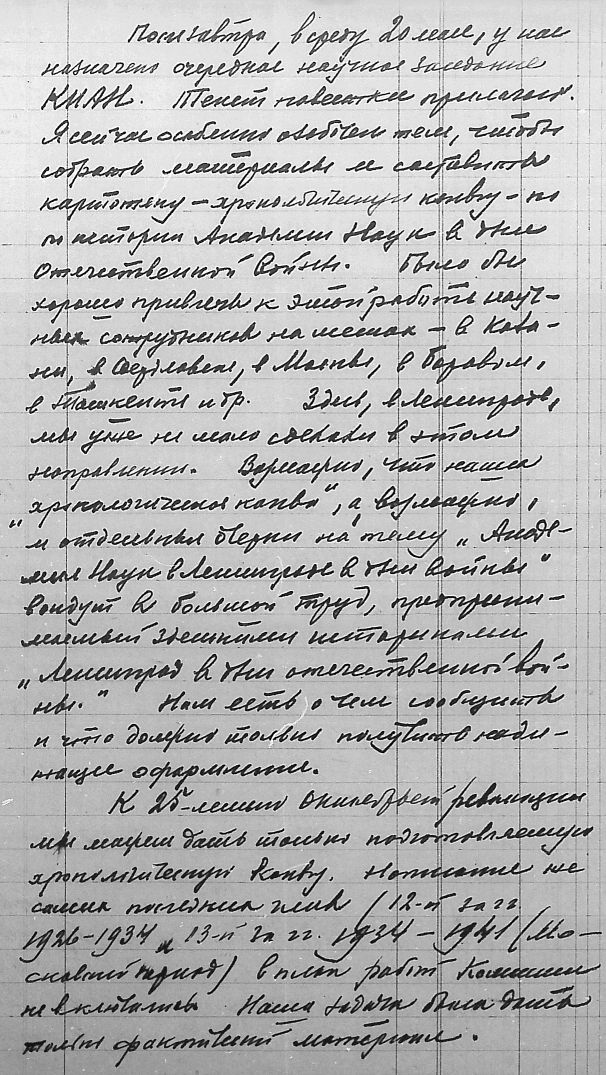 Послезавтра, в среду 20 мая, у нас
назначено очередное научное заседание
КИАН. Текст повестки прилагаю.
Я сейчас особенно озабочен тем, чтобы
собрать материалы и составить
картотеку – хронологическую канву – по
истории Академии Наук в дни
Отечественной войны. Было бы
хорошо привлечь к этой работе науч-
ных сотрудников на местах – в Каза-
ни, в Свердловске, в Москве, в Боровом,
в Ташкенте и др. Здесь, в Ленинграде,
мы уже не мало сделали в этом
направлении. Возможно, что наша
„хронологическая канва“, а возможно,
и отдельные очерки на тему „Акаде-
мия Наук в Ленинграде в дни войны“
войдут в большой труд, предприни-
маемый здешними историками
„Ленинград в дни отечественной вой-
ны.“ Нам есть о чем сообщить
и что должно только получить надле-
жащее оформление.
К 25-летию Октябрьской революции
мы можем дать только подготовляемую
хронологическую канву. Написание же
самих последних глав (12-й за гг.
1926–1934 и 13-й за гг. 1934–1941 (Мо-
сковский период) в план работ Комиссии
не включалось. Наша задача была дать
только фактический материал.